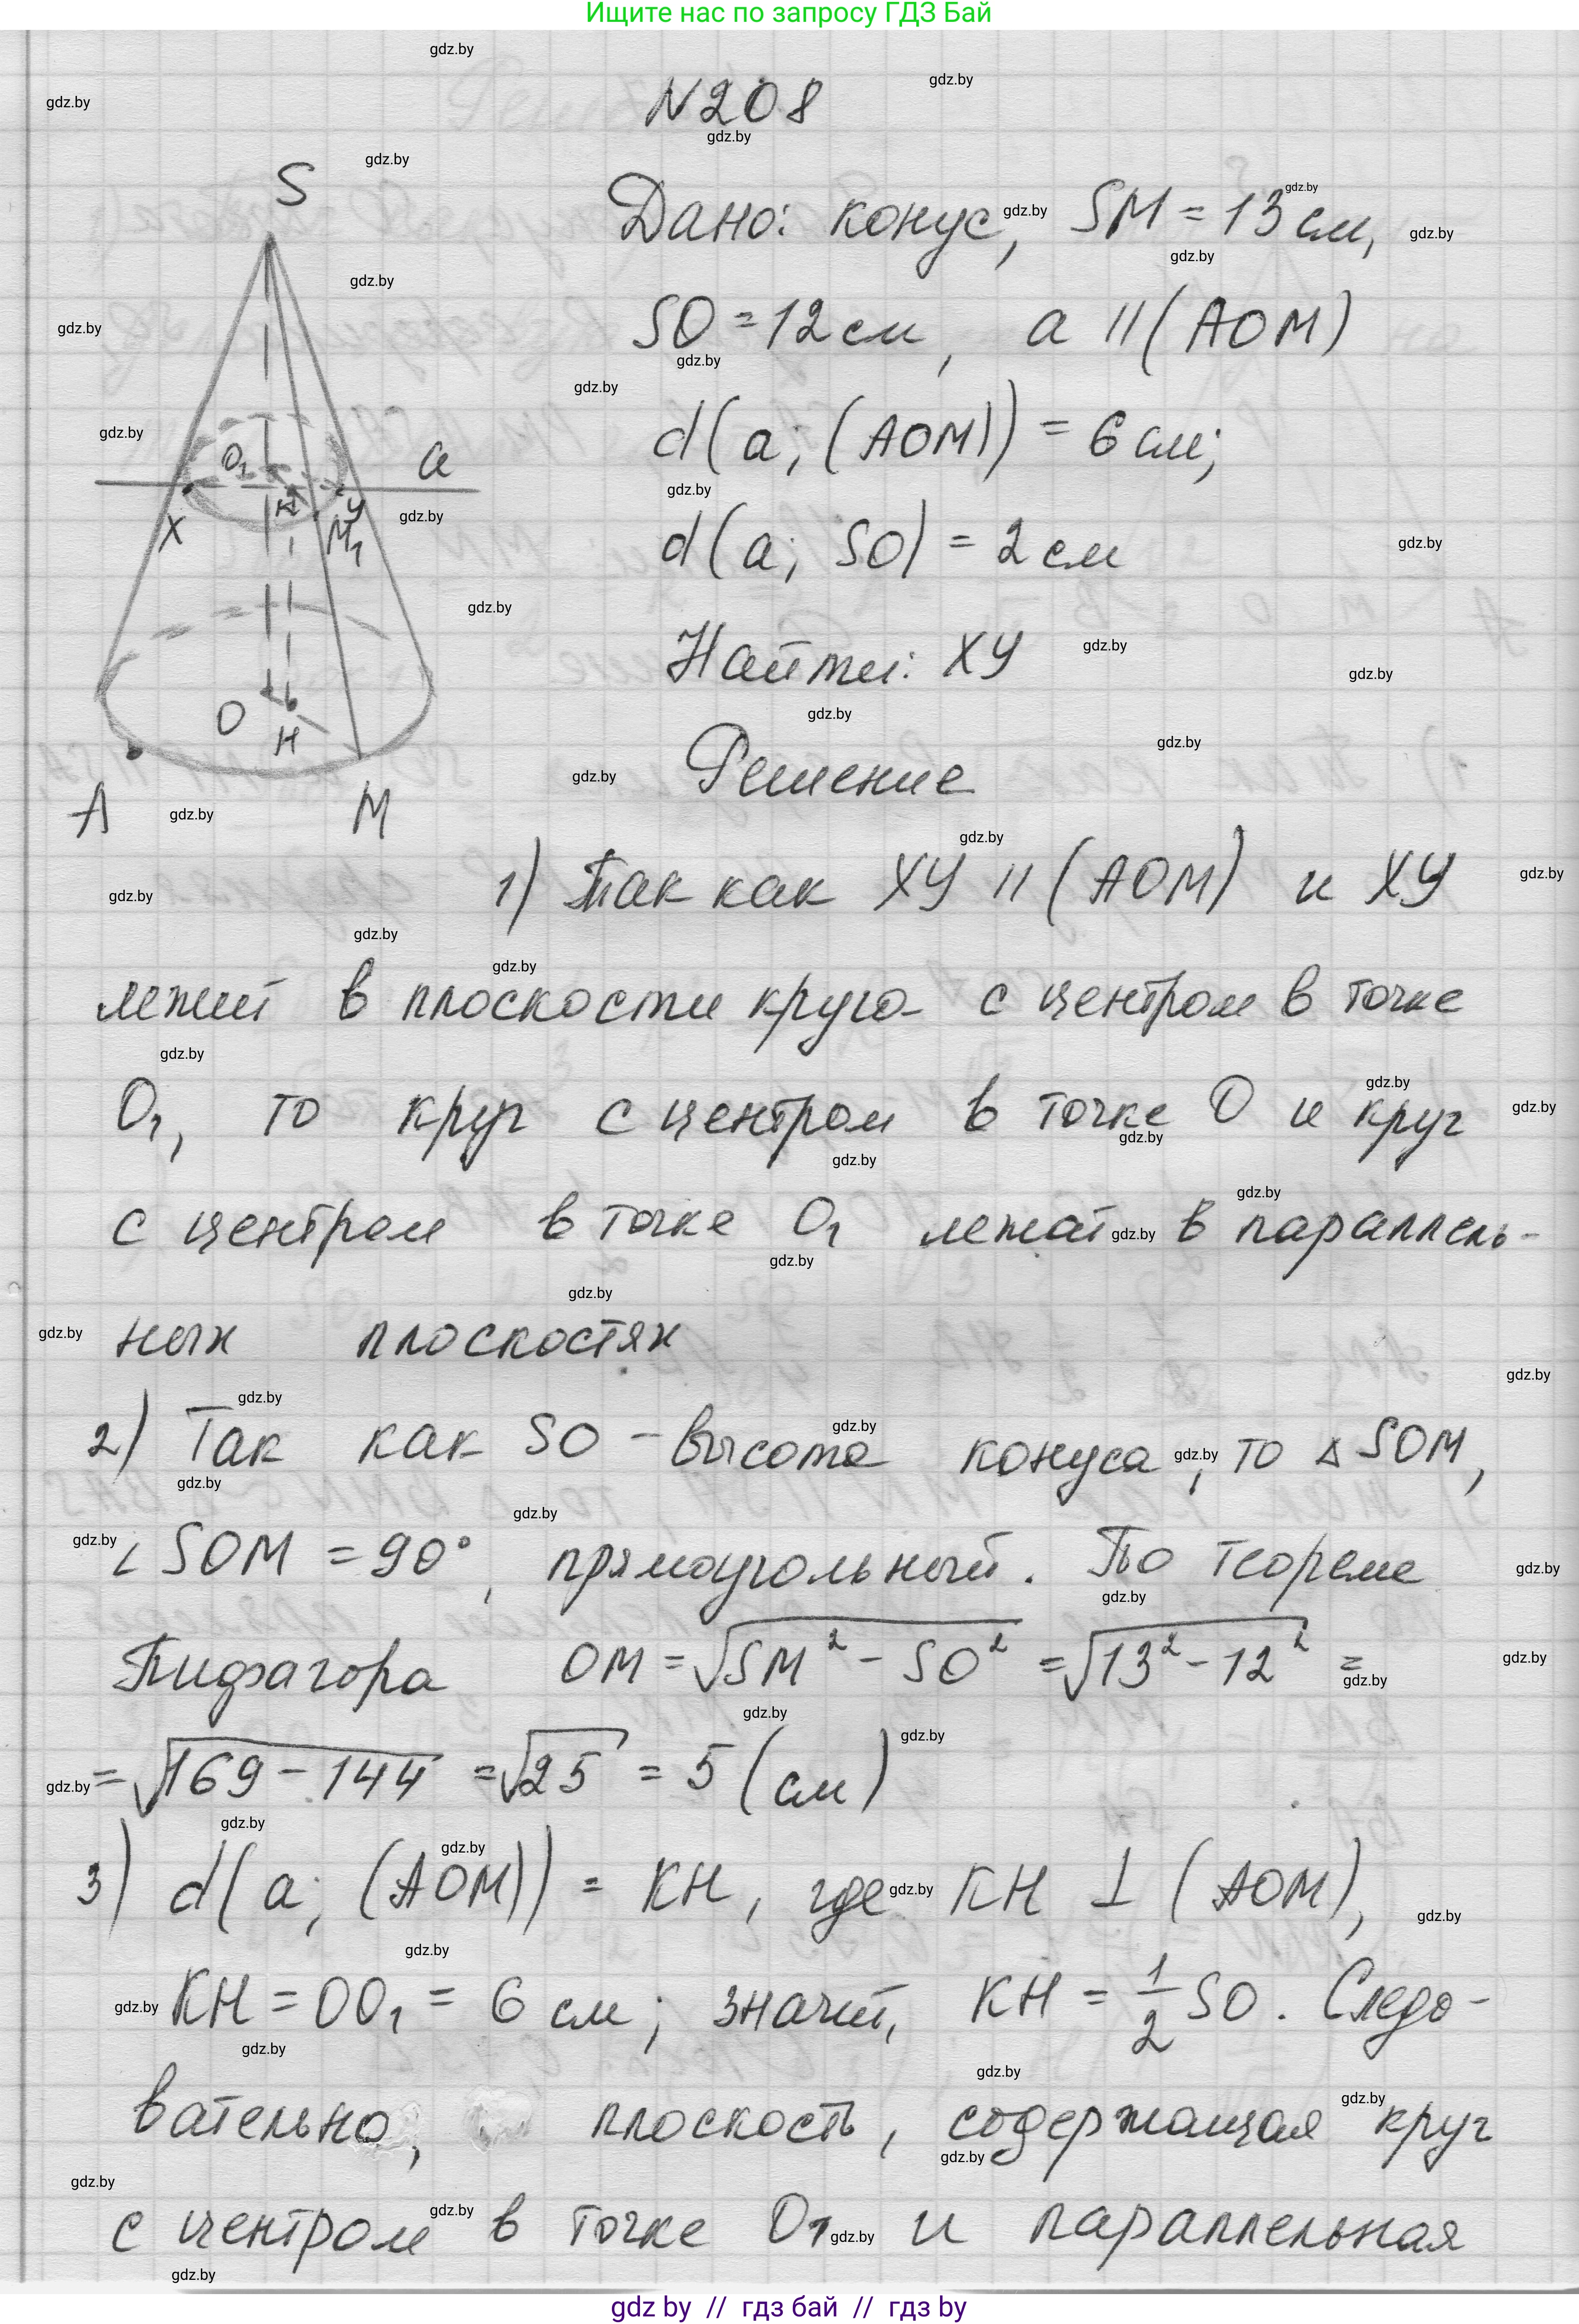 Ищите нас по запросу ГДЗ Бай
N208
S
Дано: конус, SM = 13 см,
SO = 12 см, a || (AOM)
d(a; (AOM)) = 6 см;
O₁ a
X K У M₁
d(a; SO) = 2 см
Найти: XУ
O H
A M
Решение
1) Так как XУ || (AOM) и XУ
лежит в плоскости круга с центром в точке
O₁, то круг с центром в точке O и круг
с центром в точке O₁ лежат в параллель-
ных плоскостях
2) Так как SO - высота конуса, то △ SOM,
∠ SOM = 90°, прямоугольный. По теореме
Пифагора OM = √SM² - SO² = √13² - 12² =
= √169 - 144 = √25 = 5 (см)
3) d(a; (AOM)) = KH, где KH ⊥ (AOM),
KH = OO₁ = 6 см; значит, KH = 1/2 SO. Следо-
вательно, плоскость, содержащая круг
с центром в точке O₁ и параллельная
gdz by // гдз бай // гдз by
gdz.by